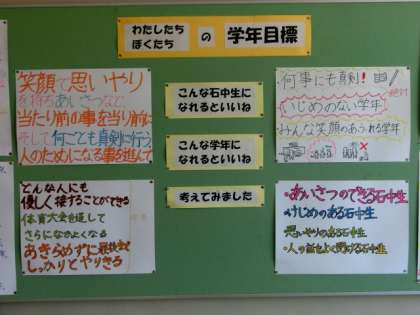 わたしたち
ぼくたち
の
学年目標
笑顔で思いやり
を持ちあいさつなど、
当たり前の事を当り前に
そして何ごとも真剣に行う、
人のためになる事を進んで
こんな石中生に
なれるといいね
こんな学年に
なれるといいね
考えてみました
何事にも真剣!
いじめのない学年
みんな笑顔のあふれる学年
どんな人にも
優しく接することができる
体育大会を通して
さらになかよくなる
あきらめずに最後まで
しっかりとやりきる
・あいさつのできる石中生
・けじめのある石中生
・思いやりのある石中生
・人の話をよく聞ける石中生